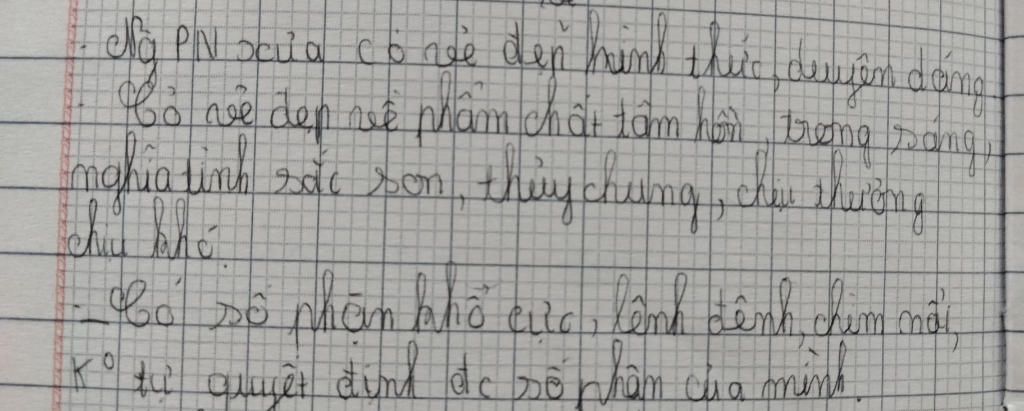 - Ng PN xưa có vẻ đẹp hình thức, duyên dáng
- Có vẻ đẹp về phẩm chất tâm hồn, trong sáng,
nghĩa tình sắc son, thủy chung, chịu thương
chịu khó.
- Có số phận khổ cực, lênh đênh, chìm nổi,
K° tự quyết định đc số phận của mình.